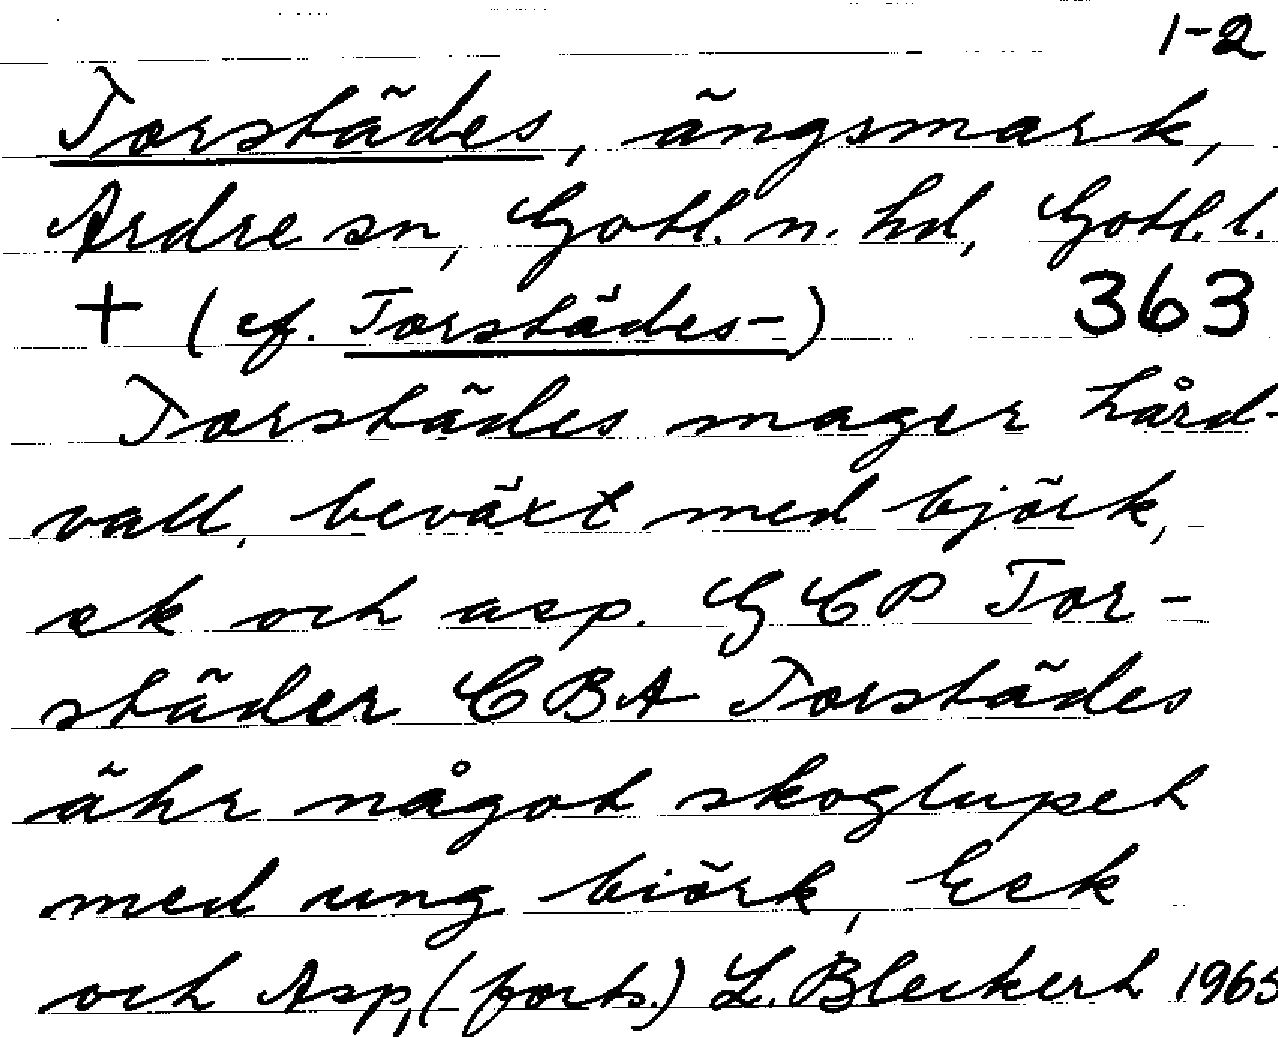 1-2
Torstädes, ängsmark,
Ardre sn, Gotl. n. hd, Gotl. l.
+ (cf. Torstädes-) 363
Torstädes mager hård-
vall, beväxt med björk,
ek och asp. GCP Tor-
städer CBA Torstädes
ähr något skoglupet
med ung biörk, Eek
och Asp, (forts.) L. Bleckert 1965